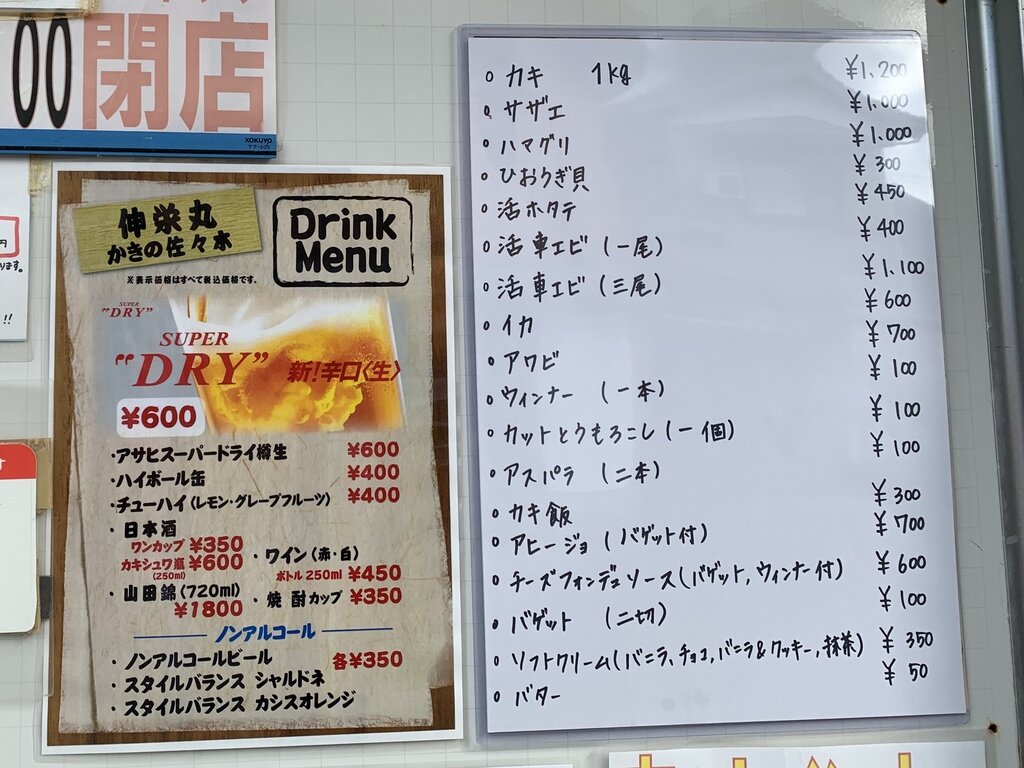 00閉店
KOKUYO
円
ります。
!!
伸栄丸
かきの佐々木
Drink
Menu
※表示価格はすべて税込価格です。
SUPER
"DRY"
SUPER
"DRY"
新!辛口〈生〉
¥600
・アサヒスーパードライ樽生 ¥600
・ハイボール缶 ¥400
・チューハイ(レモン・グレープフルーツ) ¥400
・日本酒
ワンカップ ¥350
カキシュワ瓶 ¥600
(250ml)
・ワイン(赤・白)
ボトル 250ml ¥450
・山田錦(720ml)
¥1800
・焼酎カップ ¥350
ノンアルコール
・ノンアルコールビール 各¥350
・スタイルバランス シャルドネ
・スタイルバランス カシスオレンジ
○カキ 1kg ¥1,200
○サザエ ¥1,000
○ハマグリ ¥1,000
○ひおうぎ貝 ¥300
○活ホタテ ¥450
○活車エビ(一尾) ¥400
○活車エビ(三尾) ¥1,100
○イカ ¥600
○アワビ ¥700
○ウィンナー (一本) ¥100
○カットとうもろこし(一個) ¥100
○アスパラ (二本) ¥100
○カキ飯 ¥300
○アヒージョ(バゲット付) ¥700
○チーズフォンデュソース(バゲット,ウィンナー付) ¥600
○バゲット (二切) ¥100
○ソフトクリーム(バニラ、チョコ,バニラ&クッキー,抹茶) ¥350
○バター ¥50